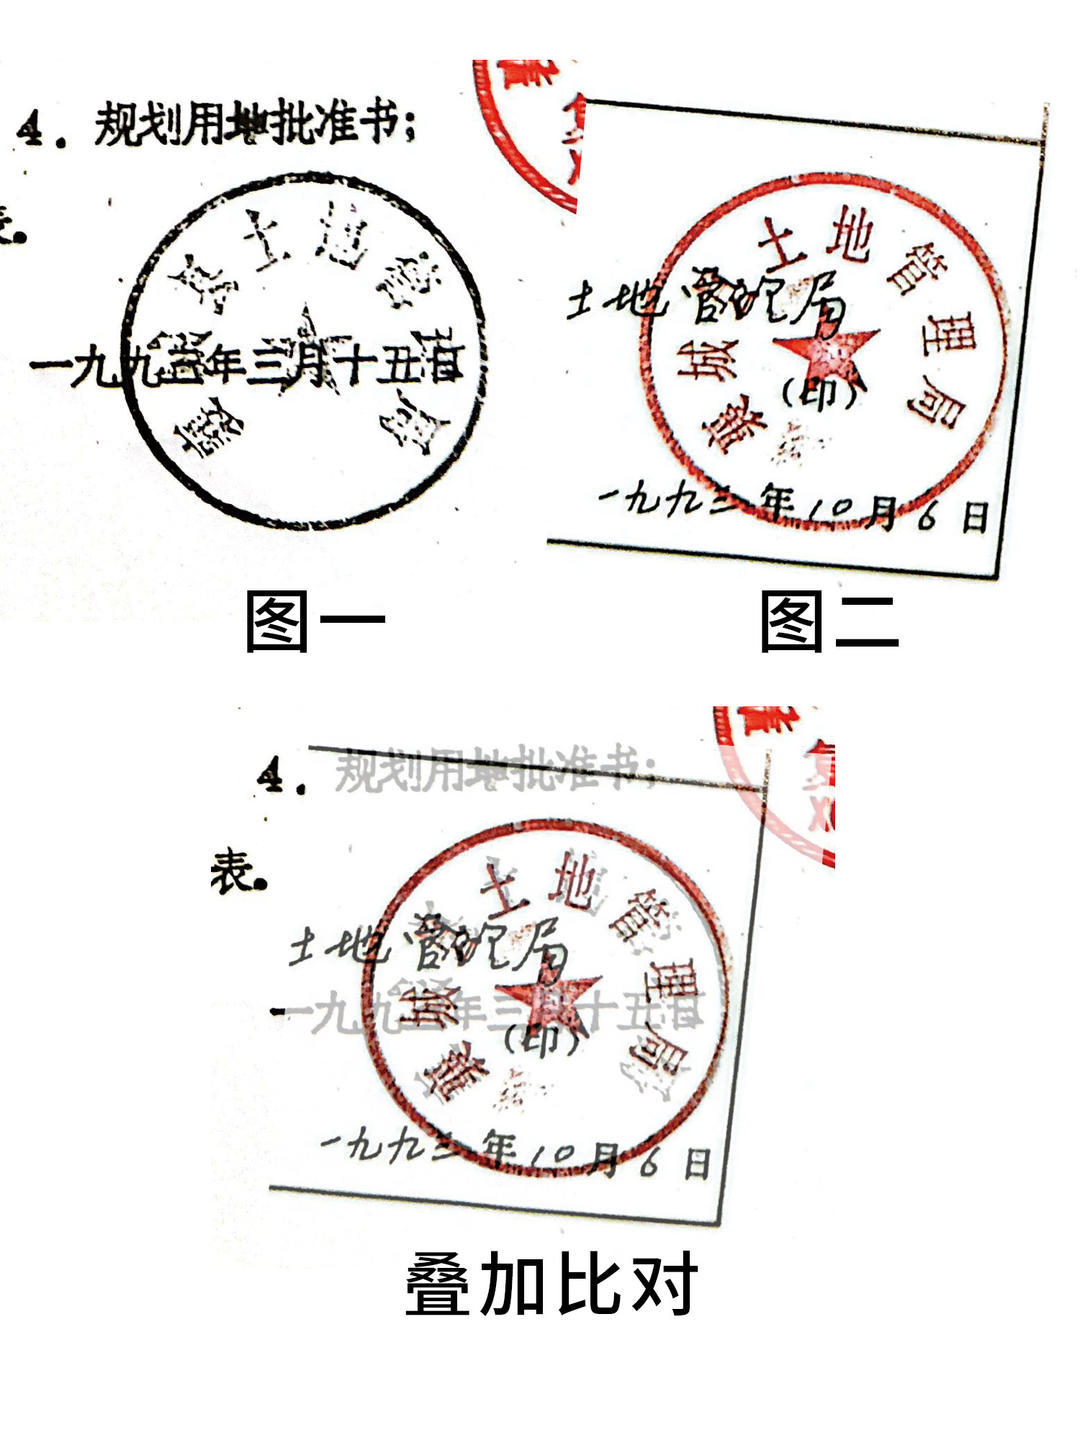 4．规划用地批准书；
表。
土地管
局
一九九三年三月十五日
图一
城县土地管理局
土地管理局
（印）
一九九三年10月6日
图二
4．规划用地批准书；
表。
土地管理局
城县土地管理局
一九九三年三月十五日
（印）
一九九三年10月6日
叠加比对